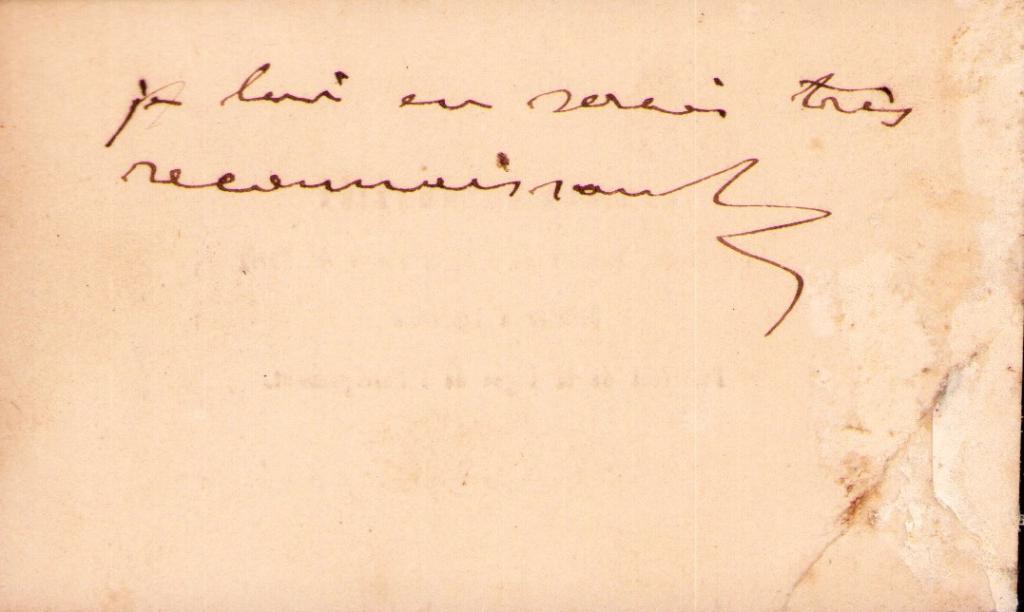 je lui en serais très
reconnaissant